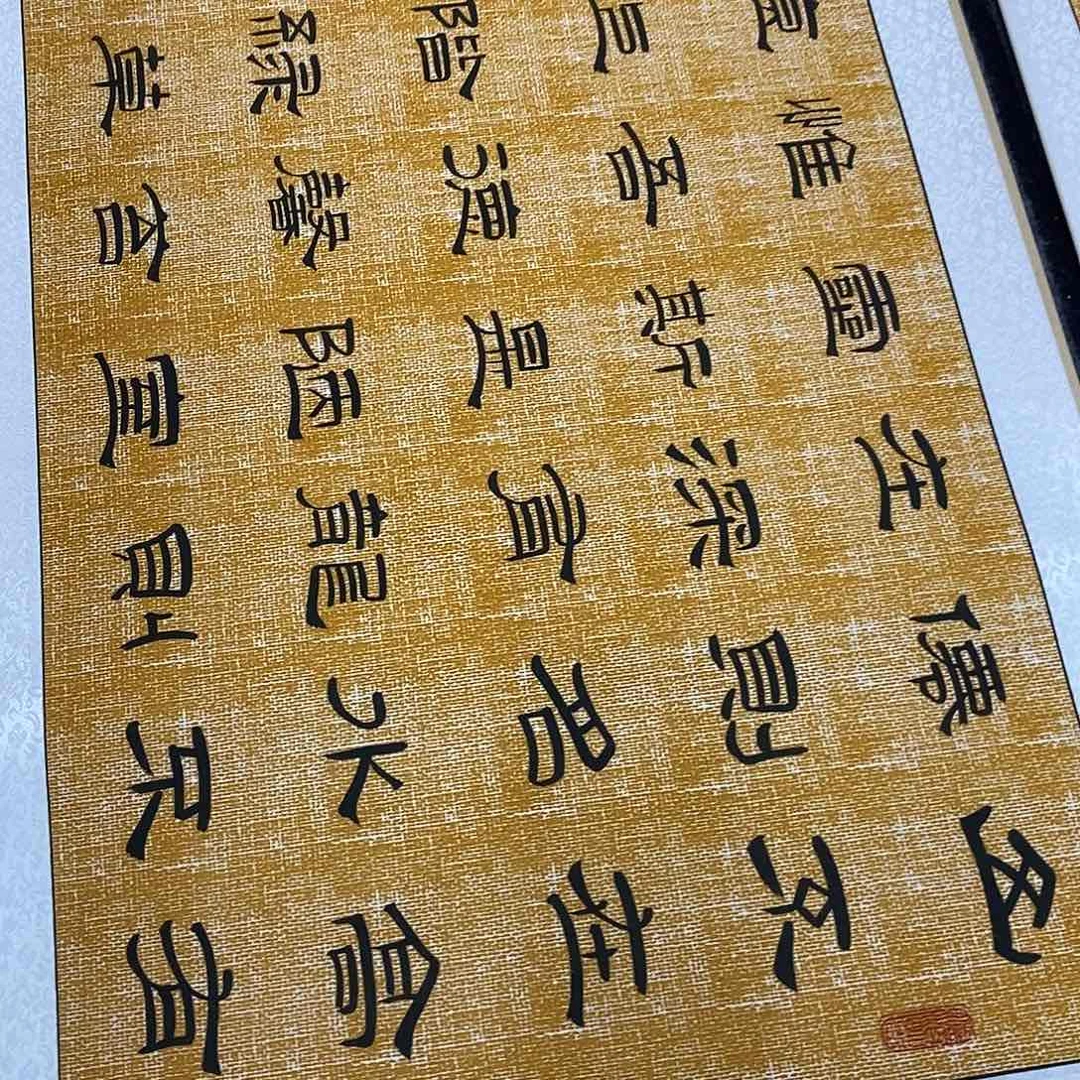 山不在高有
僊則名水不
在深有龍則
靈斯是陋室
惟吾德馨苔
痕上階綠草